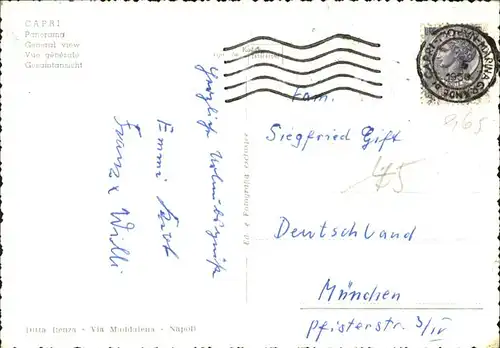 CAPRI
Panorama
General view
Vue générale
Gesamtansicht
Herzliche Urlaubsgrüße
Emmi
Franz x Willi
Fam.
Siegfried Gift
Deutschland
München
Pfisterstr. 3/IV
MARINA GRANDE
45
Ditta - Via Maddalena - Napoli